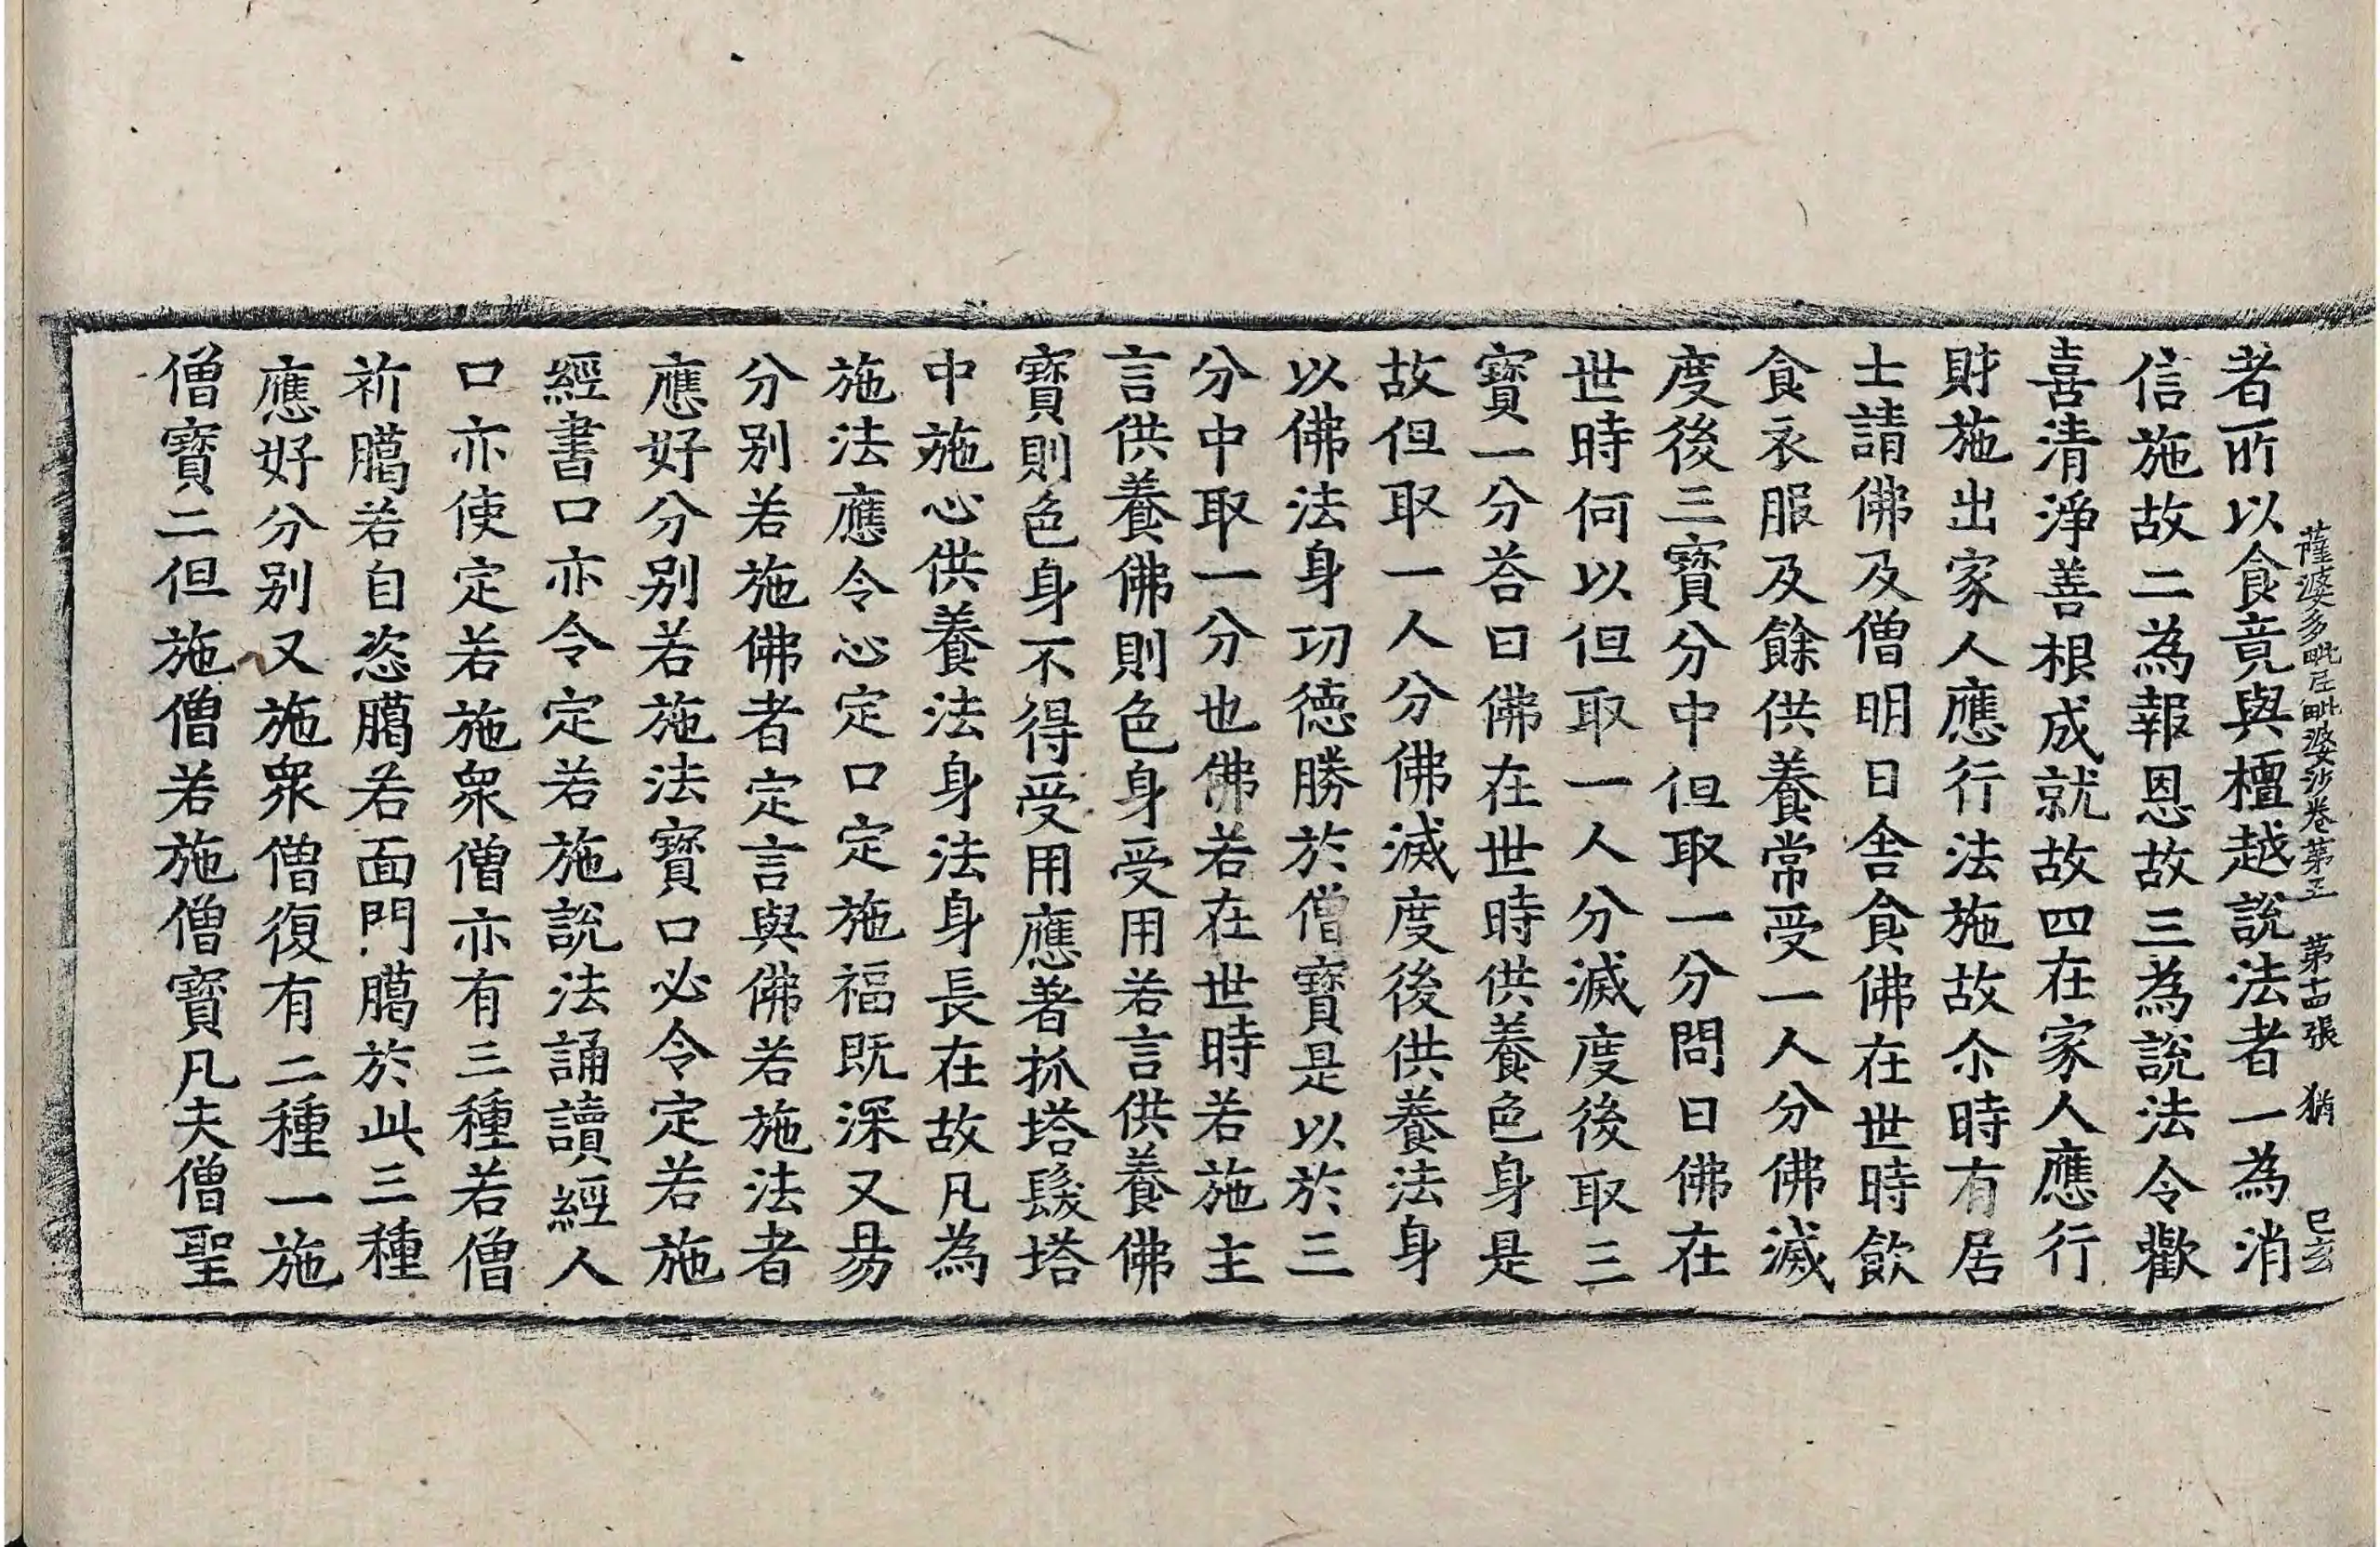 薩婆多毗尼毗婆沙卷第五　第十四張　猶　己亥
者所以食竟與檀越說法者一為消
信施故二為報恩故三為說法令歡
喜清淨善根成就故四在家人應行
財施出家人應行法施故尒時有居
士請佛及僧明日舍食佛在世時飲
食衣服及餘供養常受一人分佛滅
度後三寶分中但取一分問曰佛在
世時何以但取一人分滅度後取三
寶一分荅曰佛在世時供養色身是
故但取一人分佛滅度後供養法身
以佛法身功德勝於僧寶是以於三
分中取一分也佛若在世時若施主
言供養佛則色身受用若言供養佛
寶則色身不得受用應著抓塔髮塔
中施心供養法身法身長在故凡為
施法應令心定口定施福既深又易
分別若施佛者定言與佛若施法者
應好分別若施法寶口必令定若施
經書口亦令定若施說法誦讀經人
口亦使定若施衆僧亦有三種若僧
祈臈若自恣臈若面門臈於此三種
應好分別又施衆僧復有二種一施
僧寶二但施僧若施僧寶凡夫僧聖